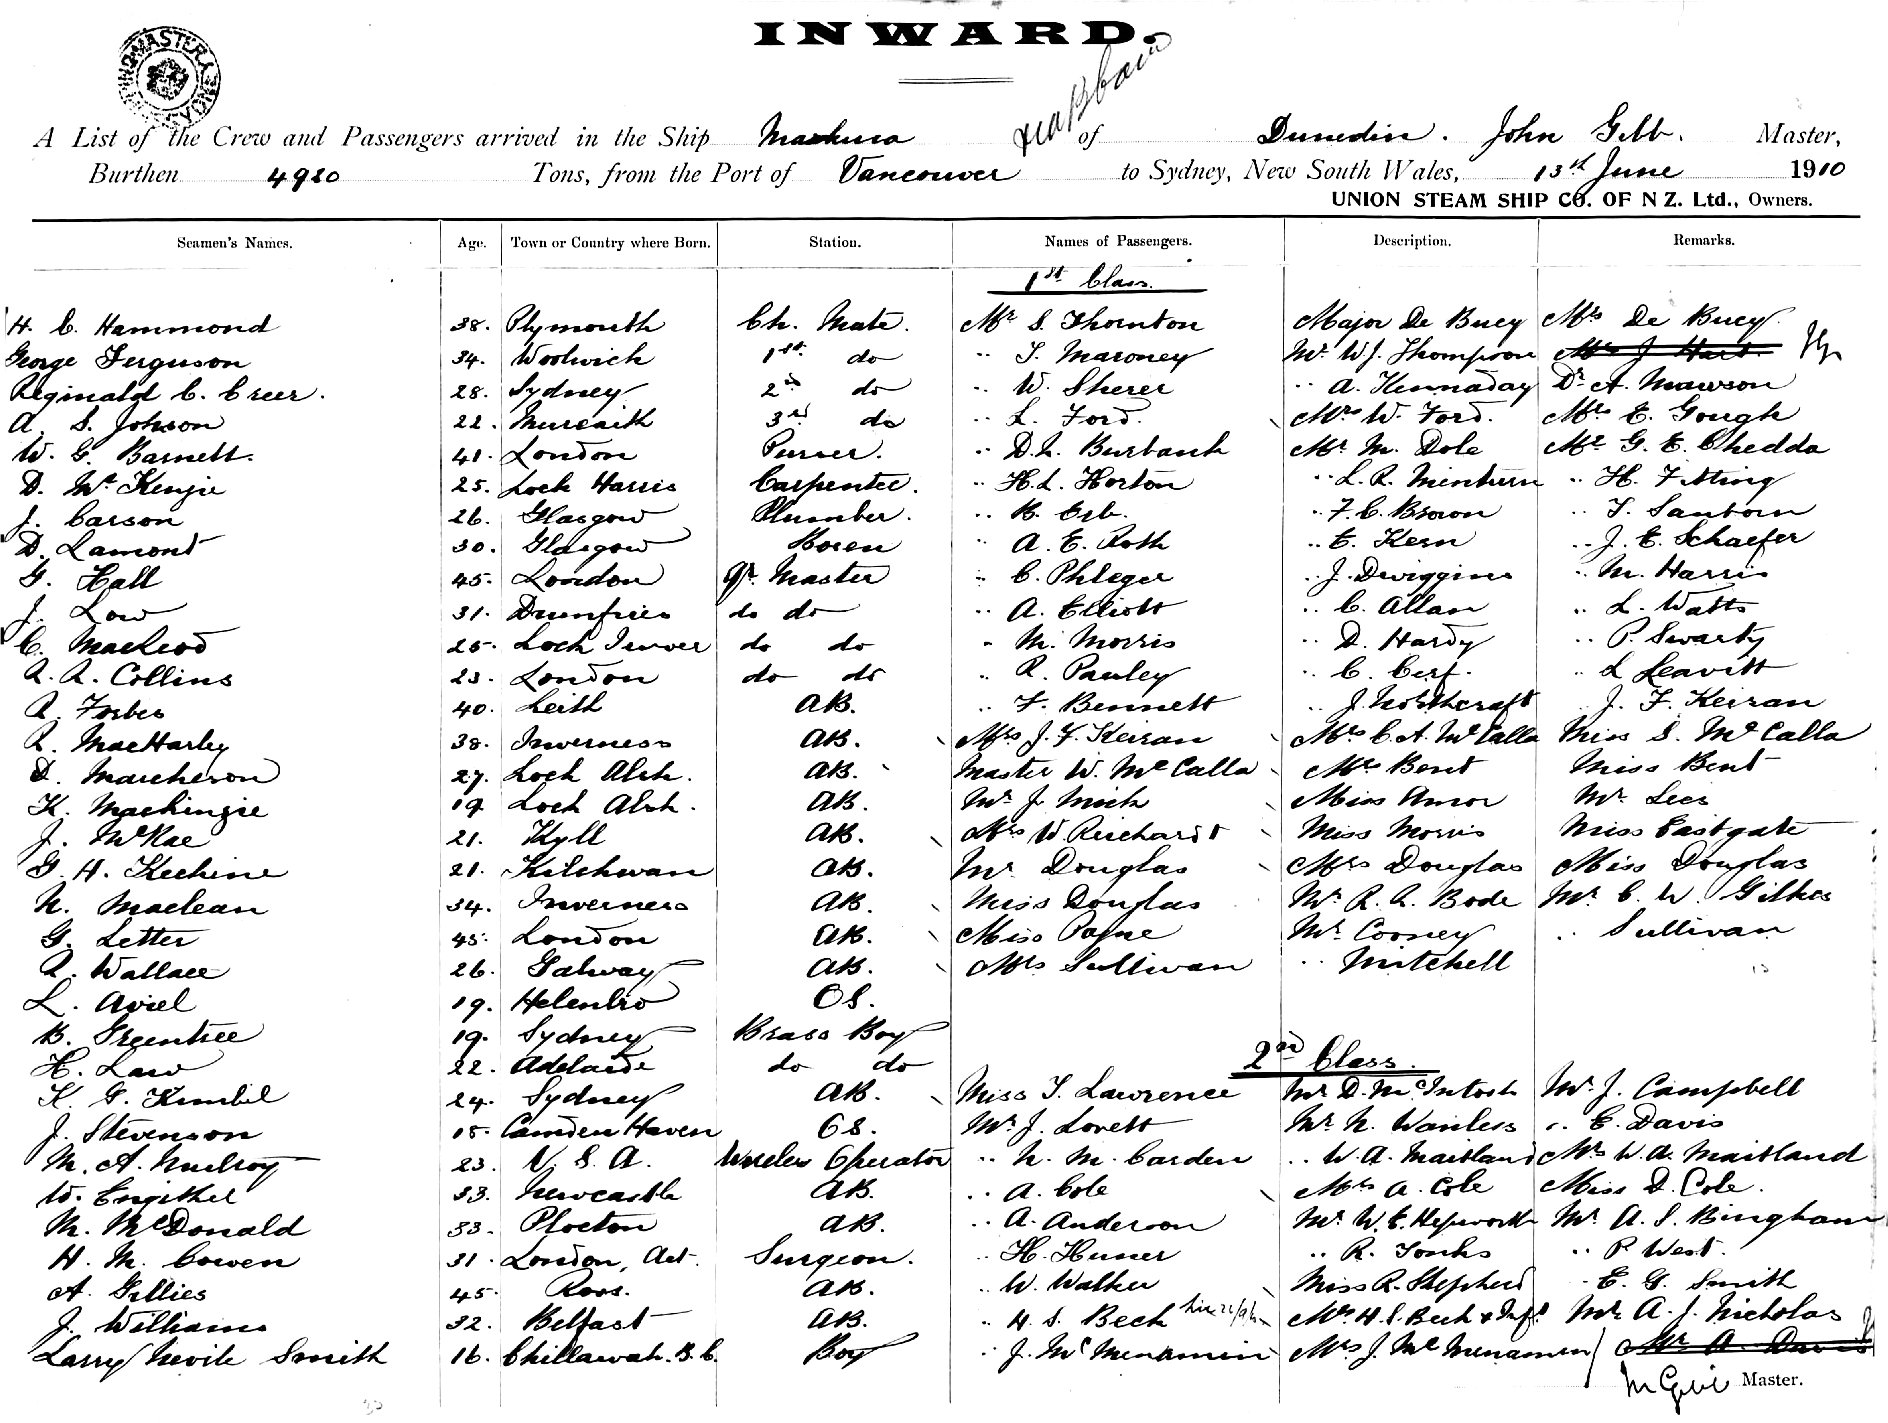 INWARD.
A List of the Crew and Passengers arrived in the Ship Makura of Dunedin. John Gibb. Master,
Burthen 4920 Tons, from the Port of Vancouver to Sydney, New South Wales, 13th June 1910
UNION STEAM SHIP CO. OF N Z. Ltd., Owners.
Seamen's Names. Age. Town or Country where Born. Station. Names of Passengers. Description. Remarks.
1st Class.
H. C. Hammond 38. Plymouth Ch. Mate. Mr S. Thornton Major De Bucy Mrs De Bucy
George Ferguson 34. Woolwich 1st do " T. Maroney Mr. W. J. Thompson Mrs J Hart.
Reginald C. Creer. 28. Sydney 2nd do " W. Sherer " A. Kennaday Dr A. Mawson
A. S. Johson 22. 3rd do " L. Ford. Mrs W. Ford. Mrs E. Gough
W. G. Barnett. 41. London Purser. " D. L. Burbank Mr M. Dole Mr G. E. Chedda
D. McKenzie 25. Loch Harris Carpenter. " H. L. Horton " L. R. Minturn " H. Fitting
J. Carson 26. Glasgow Plumber. " B. Erb. " F. C. Brown " T. Sanborn
D. Lamont 30. Glasgow " A. E. Roth " E. Kern " J. E. Schaefer
G. Hall 45. London Qr. Master " C. Phleger " J. Dwiggins " M. Harris
J. Low 31. Dumfries do do " A. Elliott " C. Allan " L. Watts
C. MacLeod 25. Loch Inver do do " M. Morris " D. Hardy " P. Swarty
R. R. Collins 23. London do do " R. Pauley " C. Cerf. " L Leavitt
R. Forbes 40. Leith AB. " F. Bennett " J. Northcraft " J. F. Keiran
R. MacHarley 38. Inverness AB. Mrs J. F. Keiran Mrs C. A. McCalla Miss S. McCalla
D. Marcheson 27. Loch Alsh. AB. Master W. McCalla Mrs Bent Miss Bent
K. Machingie 19 Loch Alsh. AB. Mr J. Mich Miss Amor Mr. Lees
J. McRae 21. Kyll AB. Mrs W. Reichardt Miss Morris Miss Eastgate
G. H. Kechine 21. Kilchwan AB. Mr Douglas Mrs Douglas Miss Douglas
N. Maclean 34. Inverness AB. Miss Douglas Mr. R. R. Bode Mr. C. W. Gilkes
G. Letter 45. London AB. Miss Payne Mr. Cooney " Sullivan
R. Wallace 26. Galway AB. Mrs Sullivan " Mitchell
L. Aviel 19. OS.
B. Greentree 19. Sydney Brass Boy
2nd Class.
H. Law 22. Adelaide do do
K. G. Kimbel 24. Sydney AB. Miss T. Lawrence Mr D. McIntosh Mr. J. Campbell
J. Stevenson 18. Camden Haven OS. Mr. J. Lovett Mr N. Wanless " E. Davis
M. A. 23. U. S. A. Wireless Operator " N. M. Carden " W. A. Maitland Mrs W. A. Maitland
W. Engithel 33. Newcastle AB. " A. Cole Mrs A. Cole Miss D. Cole.
M. McDonald 33. Plocton AB. " A. Anderson Mr. W. E. Hepworth Mr. A. S. Bingham
H. M. Cowen 31. London, Act. Surgeon. " H. Huner " R. Tonks " P. West.
A. Gillies 45. Ross. AB. " W. Walker Miss R. Shepherd " E. G. Smith
J. Williams 32. Belfast AB. " H. S. Beck Mrs. H. S. Beck & Inft Mr. A. J. Nicholas
Larry Nevile Smith 16. Chillawah. B. C. Boy " J. McMenamin Mrs J. McMenamen Mr A. Davis
Master.